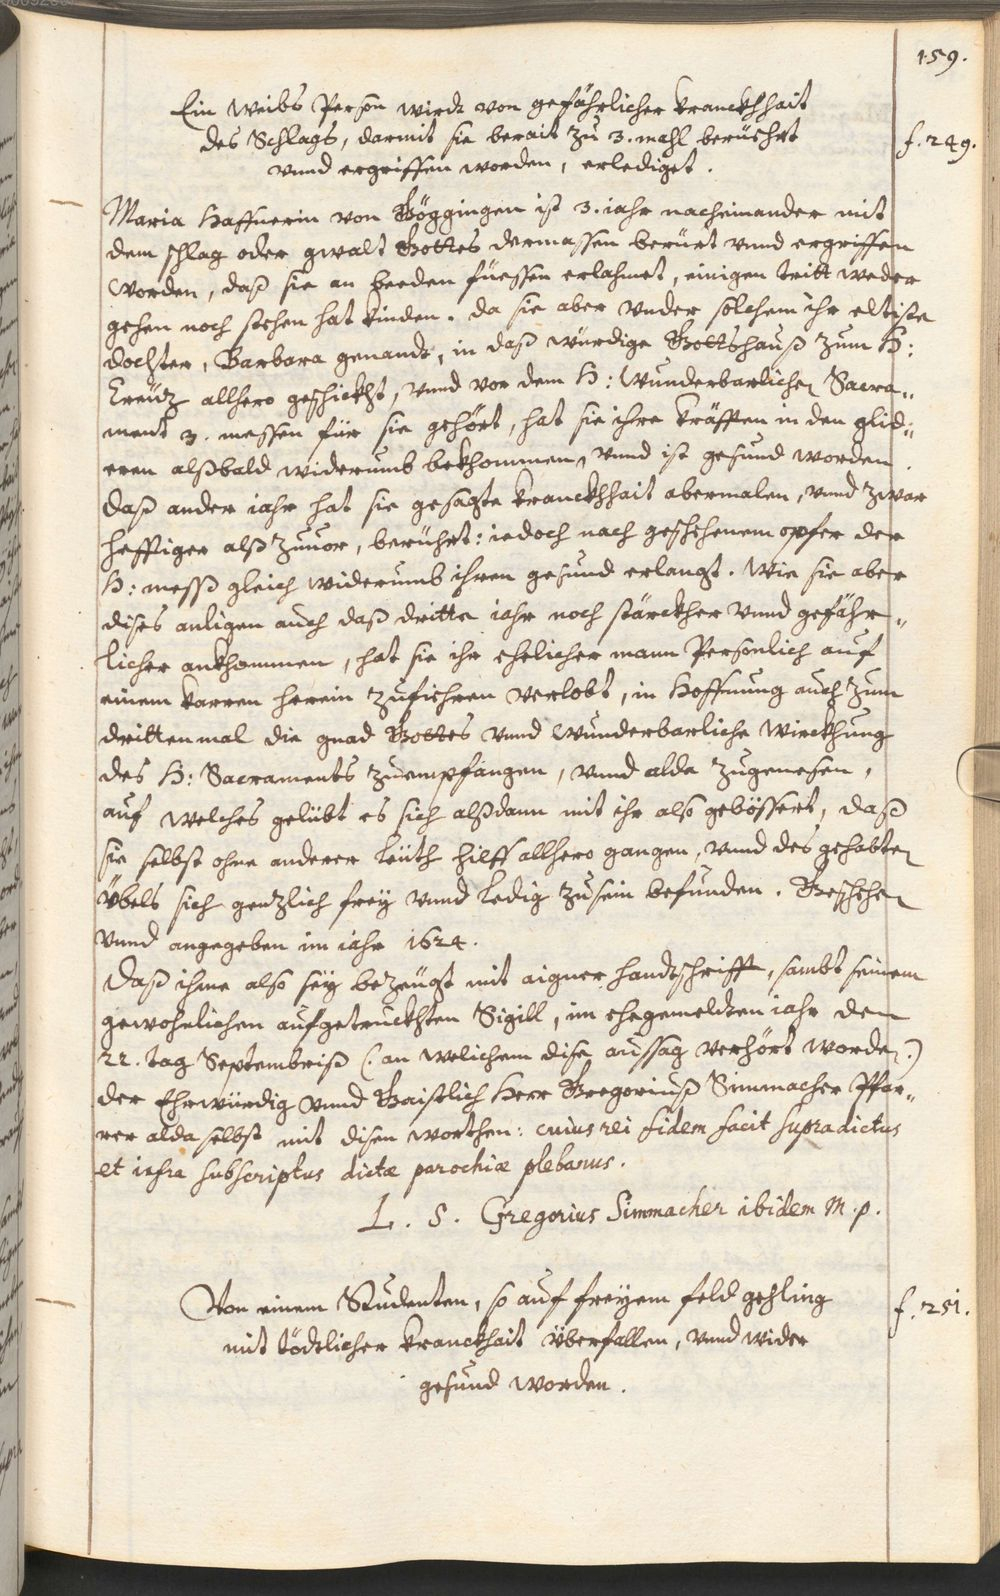 159.
Ein Weibs Person wirdt von gefährlicher kranckhhait
des Schlags, darmit sie berait zu 3. mahl berüehrt
vnnd ergriffen worden, erlediget.
f. 249.
Maria Haffnerin von Göggingen ist 3. iahr nacheinander mit
dem schlag oder gwalt Gottes dermassen berürt vnnd ergriffen
worden, daß sie an beeden füessen erlahmet, einigen tritt weder
gehen noch stehen hat kinden. da sie aber vnder solchem ihr eltiste
dochter, Barbara genandt, in daß würdige Gottshauß zum H:
Creütz allhero geschickht, vnnd vor dem H: Wunderbarlichen Sacra„
ment 3. messen für sie gehört, hat sie ihre kräfften in den glid„
eren alßbald widerumb bekhommen, vnnd ist gesund worden.
daß ander iahr hat sie gesagte kranckhhait abermalen, vnnd zwar
hefftiger alß zuuor, berührt: iedoch nach geschehenem opfer der
H: mess gleich widerumb ihren gesund erlangt. Wie sie aber
dises anligen auch daß dritte iahr noch stärckher vnnd gefähr„
licher ankhommen, hat sie ihr ehelicher mann Persönlich auf
einem karren herein zufiehren verlobt, in Hoffnung auch zum
dritten mal die gnad Gottes vnnd wunderbarliche Wirckhung
des H: Sacraments zuempfangen, vnnd alda zugenesen,
auf welches gelübt es sich alßdann mit ihr also gebössert, daß
sie selbst ohne anderer leüth hilff allhero gangen, vnnd des gehabten
übels sich gentzlich frey vnnd ledig zusein befunden. Geschehen
vnnd angegeben im iahr 1624.
Daß ihme also sey bezeügt mit aigner handtschrifft, sambt seinem
gewohnlichen aufgetruckhten Sigill, im ehegemeldten iahr den
22. tag Septembriß (: an welichem dise aussag verhört worden:)
der Ehrwürdig vnnd Gaistlich Herr Gregoriuß Simmacher Pfar„
rer alda selbst mit disen worthen: cuius rei fidem facit supradictus
et infra subscriptus dictæ parochiæ plebanus.
L. S. Gregorius Simmacher ibidem M. p.
Von einem Studenten, so auf freyem feld gehling
mit tödtlicher kranckhait überfallen, vnnd wider
gesund worden.
f. 251.